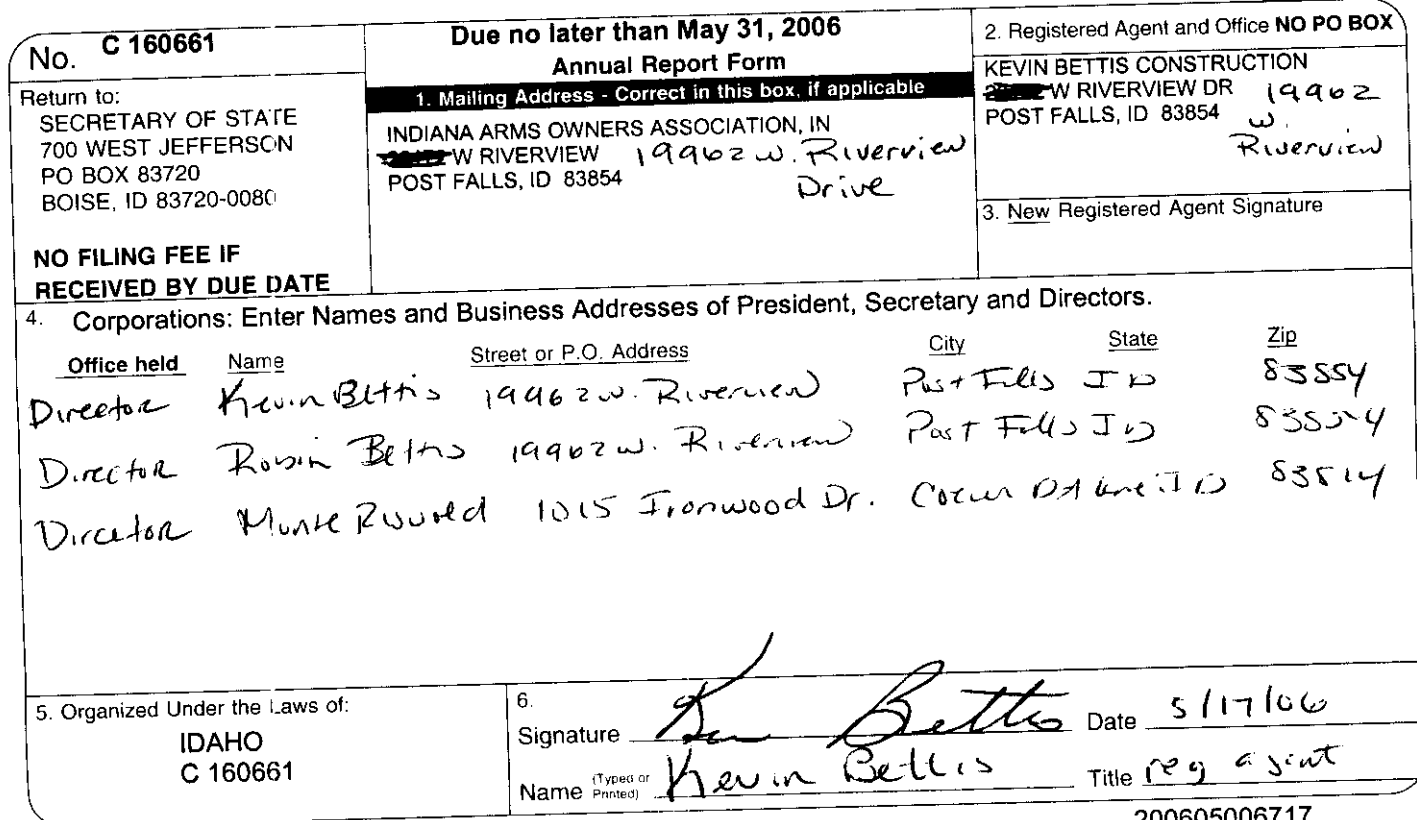 No. C 160661
Return to:
SECRETARY OF STATE
700 WEST JEFFERSON
PO BOX 83720
BOISE, ID 83720-0080
NO FILING FEE IF
RECEIVED BY DUE DATE
Due no later than May 31, 2006
Annual Report Form
1. Mailing Address - Correct in this box, if applicable
INDIANA ARMS OWNERS ASSOCIATION, IN
W RIVERVIEW 19962 w. Riverview
POST FALLS, ID 83854 Drive
2. Registered Agent and Office NO PO BOX
KEVIN BETTIS CONSTRUCTION
W RIVERVIEW DR 19962
POST FALLS, ID 83854 w.
Riverview
3. New Registered Agent Signature
4. Corporations: Enter Names and Business Addresses of President, Secretary and Directors.
Office held Name Street or P.O. Address City State Zip
Director Kevin Bettis 19962 w. Riverview Post Falls ID 83854
Director Robin Bettis 19962 w. Riverview Post Falls ID 83854
Director 1015 Ironwood Dr. Coeur D'Alene ID 83814
5. Organized Under the Laws of:
IDAHO
C 160661
6.
Signature Kevin Bettis Date 5/17/06
Name (Typed or Printed) Kevin Bettis Title reg agent
200605006717